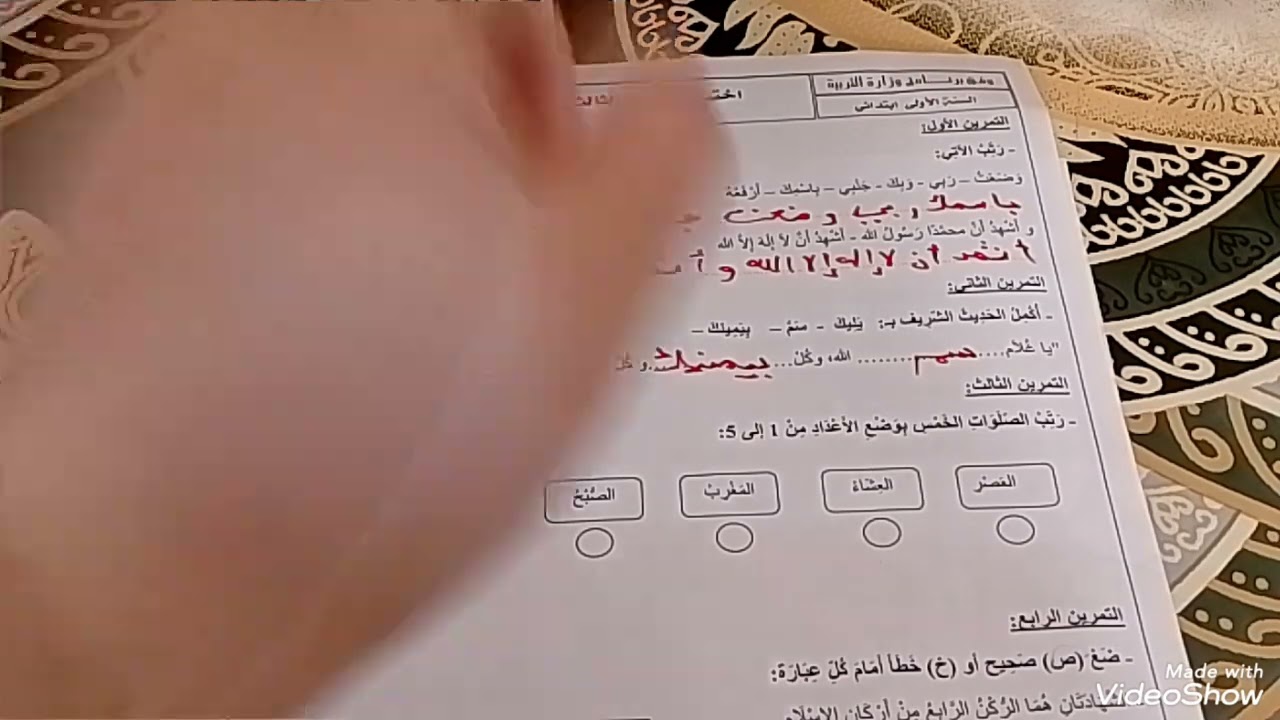 وفق برنامج وزارة التربية
السنة الأولى ابتدائي
التمرين الأول:
- رَتِّبْ الآتِي:
وَضَعْتُ – رَبِي – وَبِكَ - جَنْبِي – بِاسْمِكَ – أَرْفَعُهُ
باسمك ربي وضعت
و أَشْهَدُ أَنَّ محمَّدًا رَسُولُ الله - أَشْهَدُ أَنْ لَا إِلَهَ إِلاَّ الله
أشهد أن لا إله إلا الله و
التمرين الثاني:
- أَكْمِلْ الحَدِيثَ الشَّرِيفَ بـ: يَلِيكَ - سَمِّ – بِيَمِينِكَ –
"يا غُلَام.... سم ........ الله، وكُلْ... بيمينك ...و
التمرين الثالث:
- رَتِّبْ الصَّلَوَاتِ الخَمْسِ بِوَضْعِ الأَعْدَادِ مِنْ 1 إلى 5:
العَصْر العِشَاءُ المَغْرِبُ الصُّبْحُ
التمرين الرابع:
- ضَعْ (ص) صَحِيح أو (خ) خَطَأ أَمَامَ كُلِّ عِبَارَة:
الشَّهَادَتَانِ هُمَا الرُّكْنُ الرَّابِعُ مِنْ أَرْكَانِ الإسْلَامِ
Made with
VideoShow